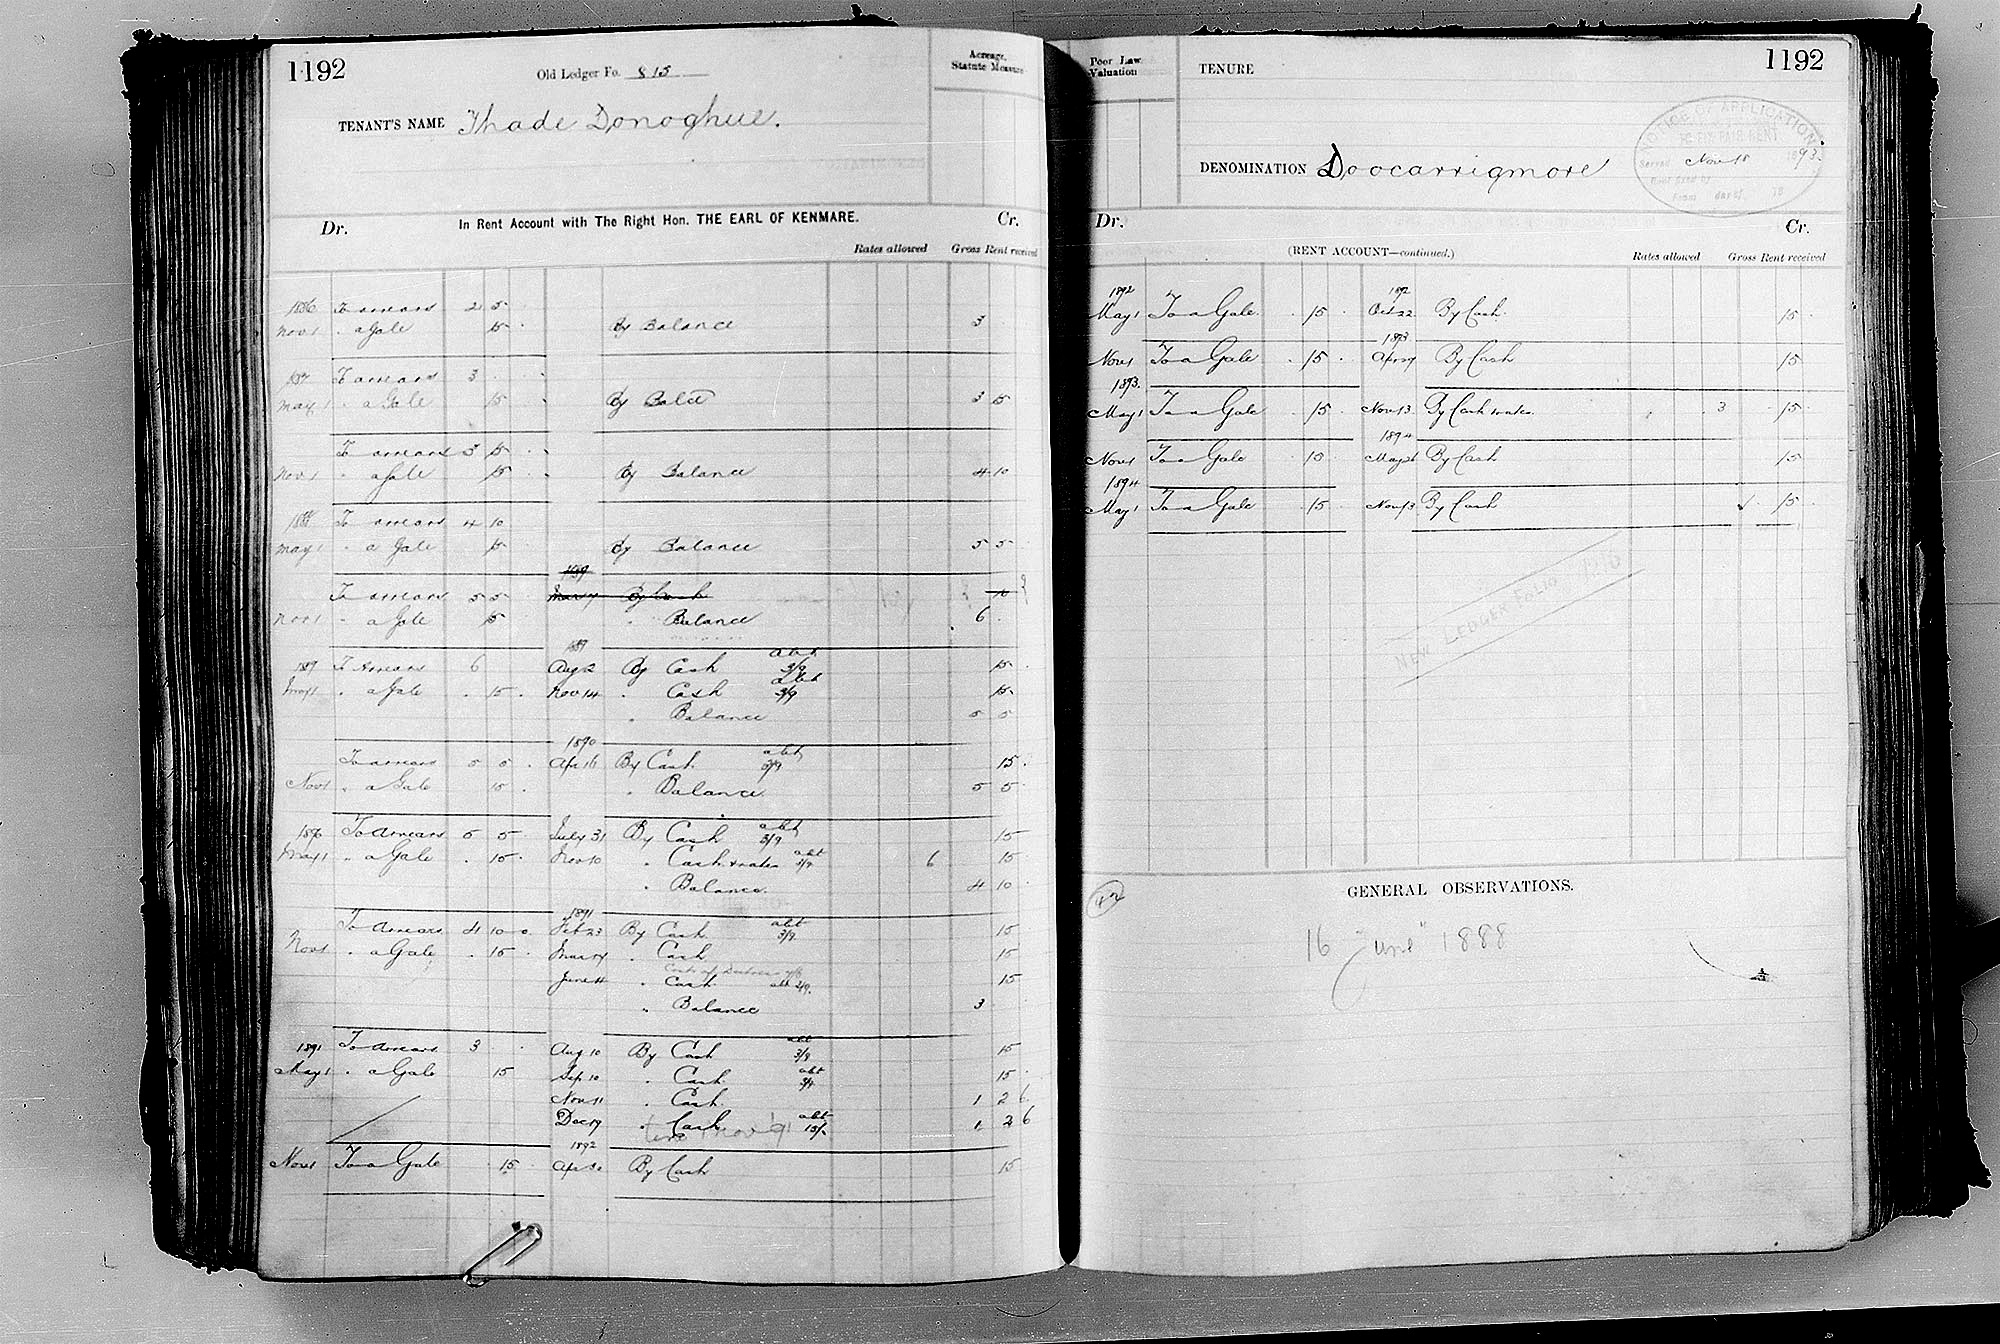 1192
Old Ledger Fo. 815
Acreage, Statute Measure
TENANT'S NAME Thade Donoghue.
Dr. In Rent Account with The Right Hon. THE EARL OF KENMARE. Cr.
Rates allowed Gross Rent received
1886 To arrears 2 5
Nov 1 " a Gale 15 By Balance 3
1887 To arrears 3
May 1 " a Gale 15 By Balce 3 15
To arrears 3 15
Nov 1 " a Gale 15 By Balance 4 10
1888 To arrears 4 10
May 1 " a Gale 15 By Balance 5 5
1889
To arrears 5 5 By Cash 15
Nov 1 " a Gale 15 " Balance 6
1889 abt
1889 To Arrears 6 Aug 2 By Cash 3/9 15
abt
May 1 " a Gale 15 Nov 14 " Cash 3/9 15
" Balance 5 5
1890 abt
To arrears 5 5 Apr 16 By Cash 3/9 15
Nov 1 " a Gale 15 " Balance 5 5
1890 To Arrears 5 5 July 31 By Cash abt 3/9 15
May 1 " a Gale 15 Nov 10 " Cash & rates abt 3/9 6 15
" Balance 4 10
1891
To Arrears 4 10 0 Feb 23 By Cash abt 3/9 15
Nov 1 " a Gale 15 " Cash 15
Costs of
June 11 " Cash abt 3/9 15
" Balance 3
1891 To Arrears 3 Aug 10 By Cash abt 3/9 15
May 1 " a Gale 15 Sep 10 " Cash abt 15
Nov 11 " Cash 1 2 6
Dec 19 " Cash abt 1 2 6
1892
Nov 1 To a Gale 15 By Cash 15
Poor Law Valuation
TENURE
1192
NOTICE OF APPLICATION
TO FIX FAIR RENT
Served Nov 15 1893
Rent fixed by
From day of 18
DENOMINATION Doocarrigmore
Dr. Cr.
(RENT ACCOUNT—continued.) Rates allowed Gross Rent received
1892 1892
May 1 To a Gale 15 Oct 22 By Cash 15
1893
Nov 1 To a Gale 15 By Cash 15
1893
May 1 To a Gale 15 Nov 13 By Cash & rates 3 15
1894
Nov 1 To a Gale 15 By Cash 15
1894
May 1 To a Gale 15 Nov 13 By Cash 15
NEW LEDGER FOLIO
42
GENERAL OBSERVATIONS.
16 June 1888